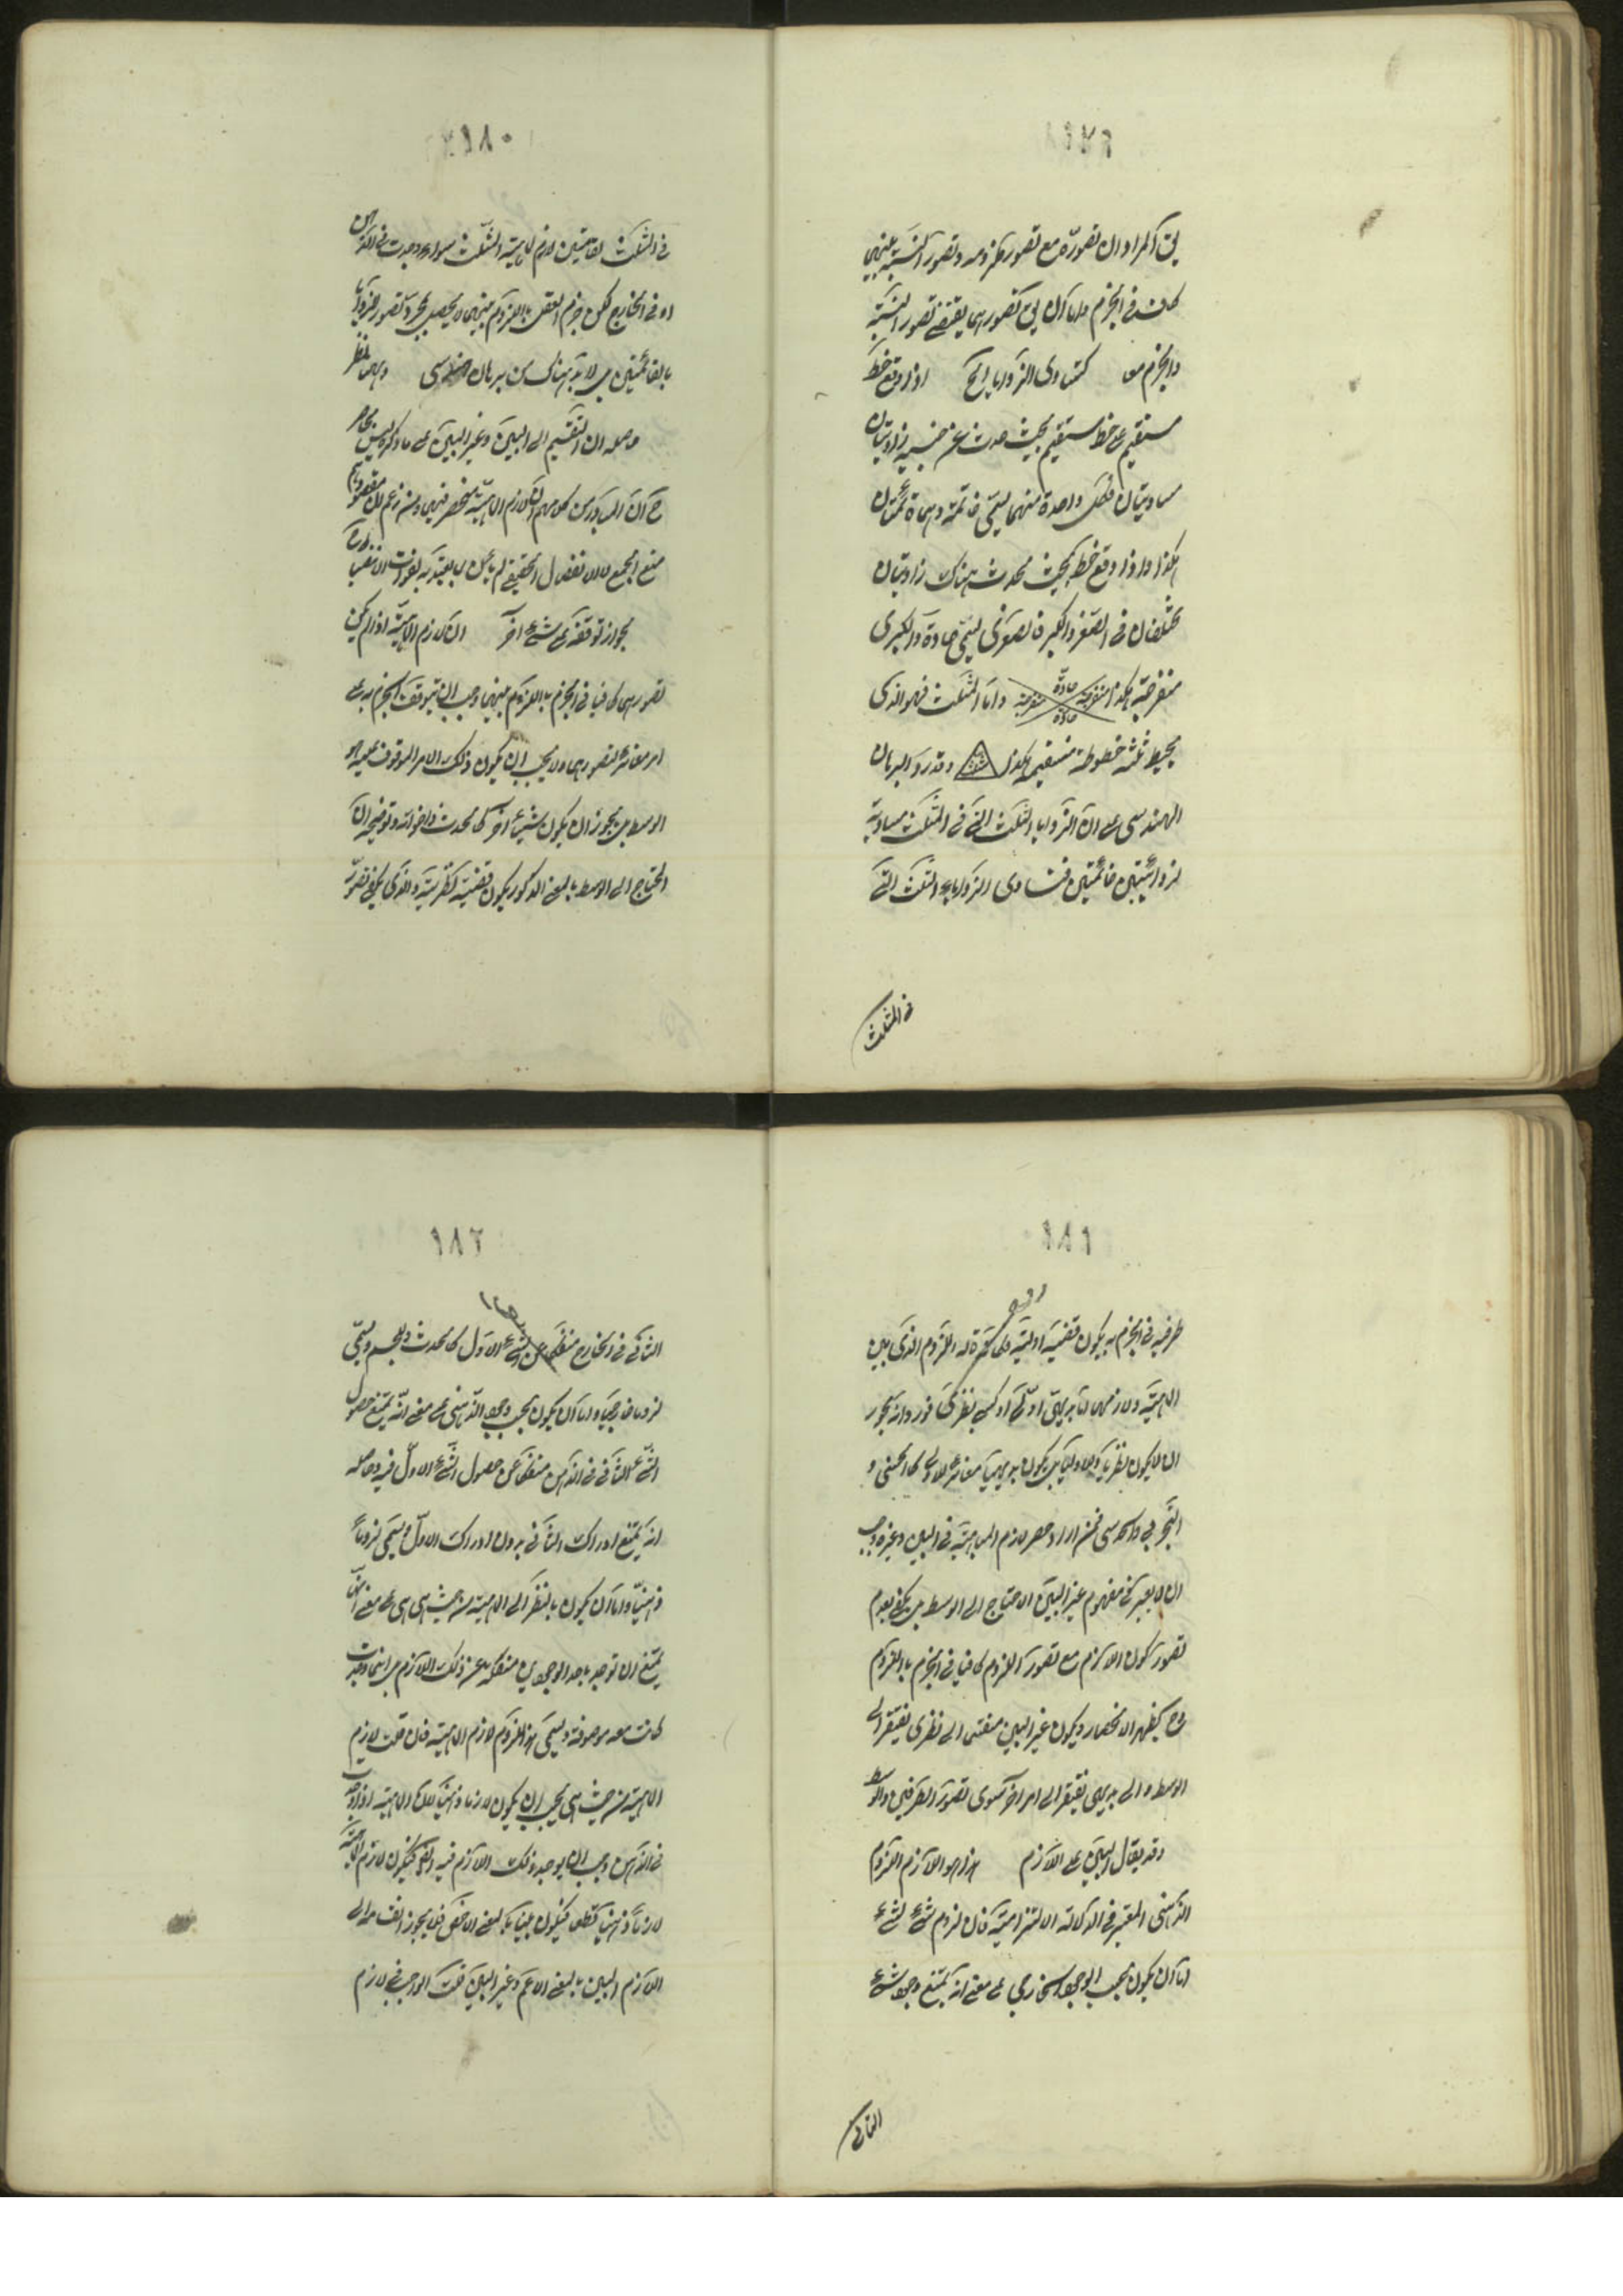 ١٧٩
ان المراد ان تصوره مع تصور ملزومه وتصور النسبة بينهما
كاف في الجزم واما ان تصورهما يقتضي تصور النسبة
والجزم معا كتساوى الزوايا الخ اذا وقع خط
مستقيم على خط مستقيم بحيث حدث عن جنبيه زاويتان
متساويتان فكل واحدة منهما يسمى قائمة وهما قائمتان
هكذا واذا وقع خط بحيث يحدث هناك زاويتان
مختلفتان في الصغر والكبر فالصغرى يسمى حادة والكبرى
منفرجة هكذا منفرجة حادة منفرجة حادة واما المثلث فهو الذى
يحيط ثلثة خطوط مستقيمة هكذا وقد دل البرهان
الهندسى على ان الزوايا الثلث التى في المثلث مساوية
لزاويتين قائمتين فتساوى الزوايا الثلث التى
في المثلث
١٨٠
في المثلث لقائمتين لازم لماهية المثلث سواء وجدت في الذهن
او في الخارج لكن جزم العقل باللزوم بينهما لا يحصل بمجرد تصور
بالقائمتين بل لا بد هناك من برهان هندسى
حاصله ان التقسيم الى البين وغير البين على ما ذكره ليس بحاصر
منع الجمع لان الانفصال الحقيقى لم
لجواز توقفه على شئ آخر ان لازم الماهية اذا لم يكن
تصورهما كافيا في الجزم باللزوم بينهما وجب ان يتوقف الجزم به على
امر مغاير لتصورهما ولا يجب ان يكون ذلك الامر الموقوف عليه هو
الوسط بل يجوز ان يكون شيئا آخر كالحدث واخواته وتوضيحه ان
المحتاج الى الوسط بالمعنى المذكور يكون قضية نظرية والذى يكفى تصور
١٨١
طرفيه في الجزم به يكون قضية اولية اللزوم الذى بين
الماهية ولازمها اما بديهى اولى او كسبى نظرى فورد انه يجوز
ان لا يكون نظريا ولا اوليا بل يكون بديهيا مغايرا للاولى كالحسى و
التجربى والحدسى فمن اراد حصر لازم الماهية في البين وغيره وجب
ان لا يعتبر في مفهوم غير البين الاحتياج الى الوسط بل يكفى بعدم
تصور كون اللازم مع تصور الملزوم كافيا في الجزم باللزوم
فح يظهر الانحصار ويكون غير البين منقسما الى نظرى يفتقر الى
الوسط والى بديهى يفتقر الى امر آخر سوى تصور الطرفين والوسط
وقد يقال البين على اللازم هذا هو اللازم اللزوم
الذهنى المعتبر في الدلالة الالتزامية فان لزوم شئ لشئ
اما ان يكون بحسب الوجود الخارجى على معنى انه يمتنع وجود شئ
الثانى
١٨٢
الثانى في الخارج منفكا عن الشئ الاول كالحدث للجسم ويسمى
لزوما خارجيا واما ان يكون بحسب وجود الذهنى على معنى انه يمتنع حصول
الشئ الثانى في الذهن منفكا عن حصول الشئ الاول فيه وحاصله
انه يمتنع ادراك الثانى بدون ادراك الاول ويسمى لزوما
ذهنيا واما ان يكون بالنظر الى الماهية من حيث هى هى على معنى انها
يمتنع ان توجد باحد الوجودين منفكة عن ذلك اللازم بل اينما وجدت
كانت معه موصوفة ويسمى هذا اللزوم لازم الماهية فان قلت لازم
الماهية من حيث هى يجب ان يكون لازما ذهنيا لان الماهية اذا وجدت
في الذهن وجب ان يوجد ذلك اللازم فيه ايضا فيكون لازم الماهية
لازما ذهنيا قطعا فيكون بينا بالمعنى الاخص فلا يجوز انقسامه الى
اللازم البين بالمعنى الاعم وغير البين قلت الواجب في لازم